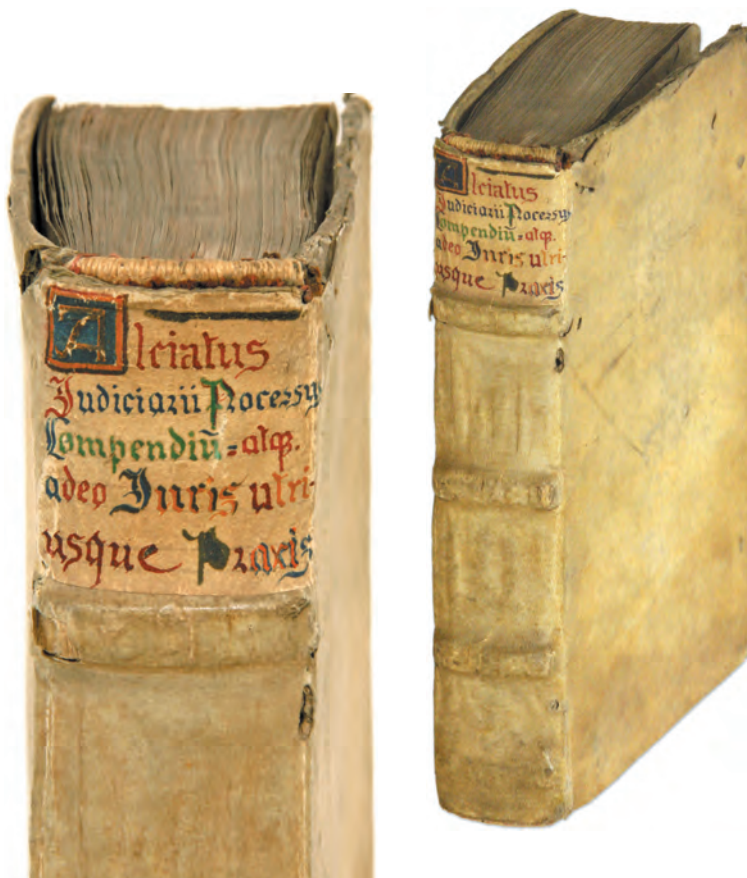 Alciatus
Judiciarii Processus
Compendiũ = atq̃.
adeo Iuris utri-
usque Praxis
Alciatus
Judiciarii Processus
Compendiũ = atq̃.
adeo Iuris utri-
usque Praxis